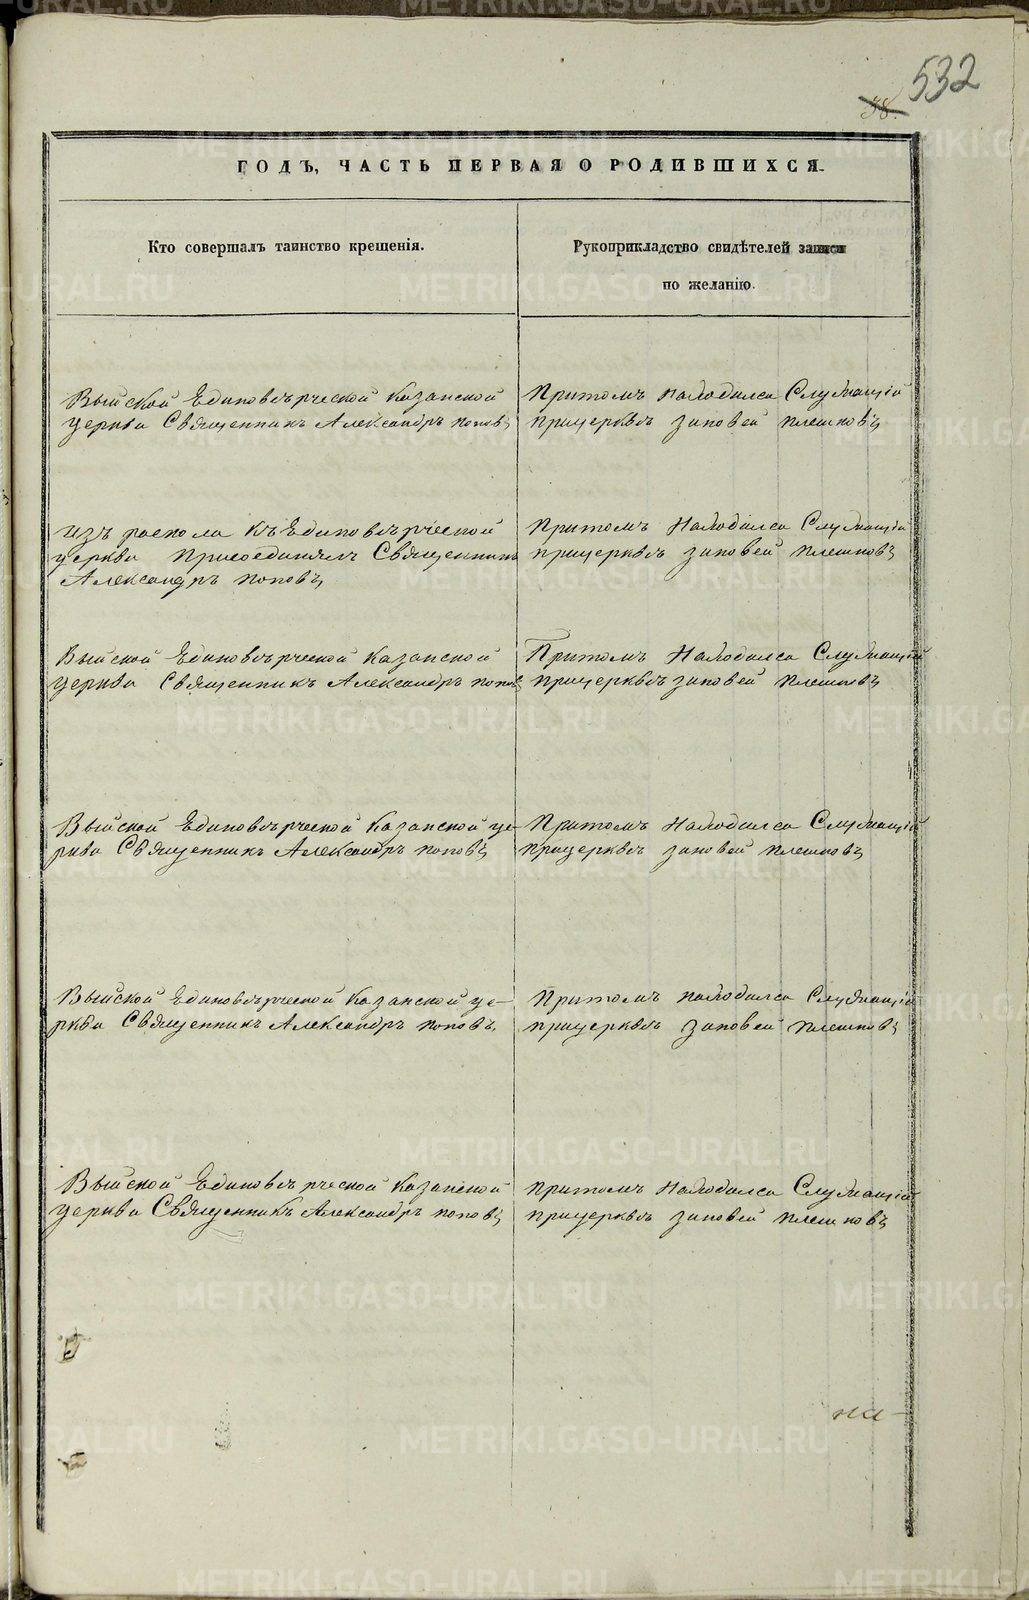 532
38.
ГОДЪ, ЧАСТЬ ПЕРВАЯ О РОДИВШИХСЯ.
Кто совершалъ таинство крещенія.
Рукоприкладство свидѣтелей записи
по желанію.
Выйской Единовѣрческой Казанской
церкви Священникъ Александръ Поповъ
Притомъ находился Служащій
прицерквѣ Зиновей Плешковъ
изъ раскола къ Единовѣрческой
церкви присоединялъ Священникъ
Александръ Поповъ
Притомъ Находился Служащій
прицерквѣ Зиновей Плешковъ
Выйской Единовѣрческой Казанской
церкви Священникъ Александръ Поповъ
Притомъ Находился Служащій
прицерквѣ Зиновей Плешковъ
Выйской Единовѣрческой Казанской це-
ркви Священникъ Александръ Поповъ
Притомъ Находился Служащій
прицерквѣ Зиновей Плешковъ
Выйской Единовѣрческой Казанской це-
ркви Священникъ Александръ Поповъ
Притомъ находился Служащій
прицерквѣ Зиновей Плешковъ
Выйской Единовѣрческой Казанской
церкви Священникъ Александръ Поповъ
притомъ Находился Служащій
прицерквѣ Зиновей Плешковъ
на-
METRIKI.GASO-URAL.RU